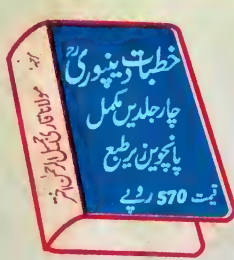 خطبات دینپوریؒ
چار جلدیں مکمل
پانچویں زیر طبع
قیمت 570 روپے
مرتبہ:
مولانا قاری جمیل الرحمٰن اختر